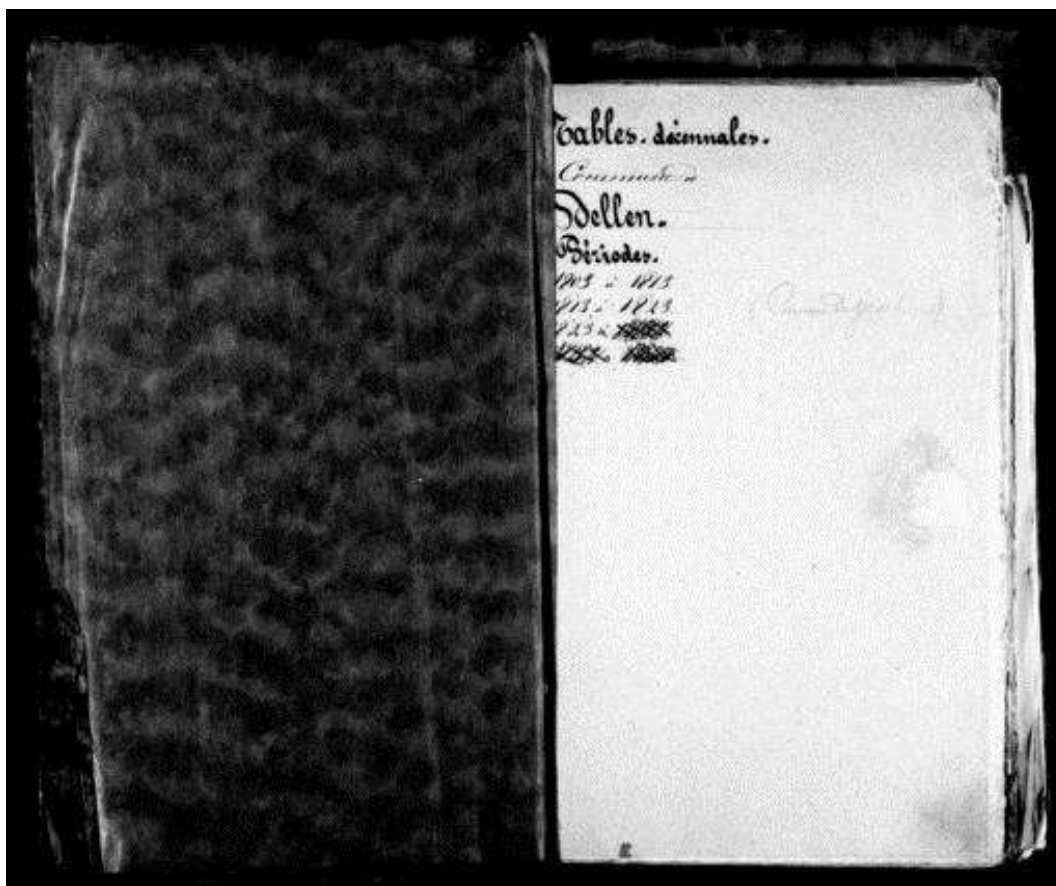 Tables. décennales.
Commune de
Dellen.
Périodes.
1803 à 1813
1813 à 1823
1823 à